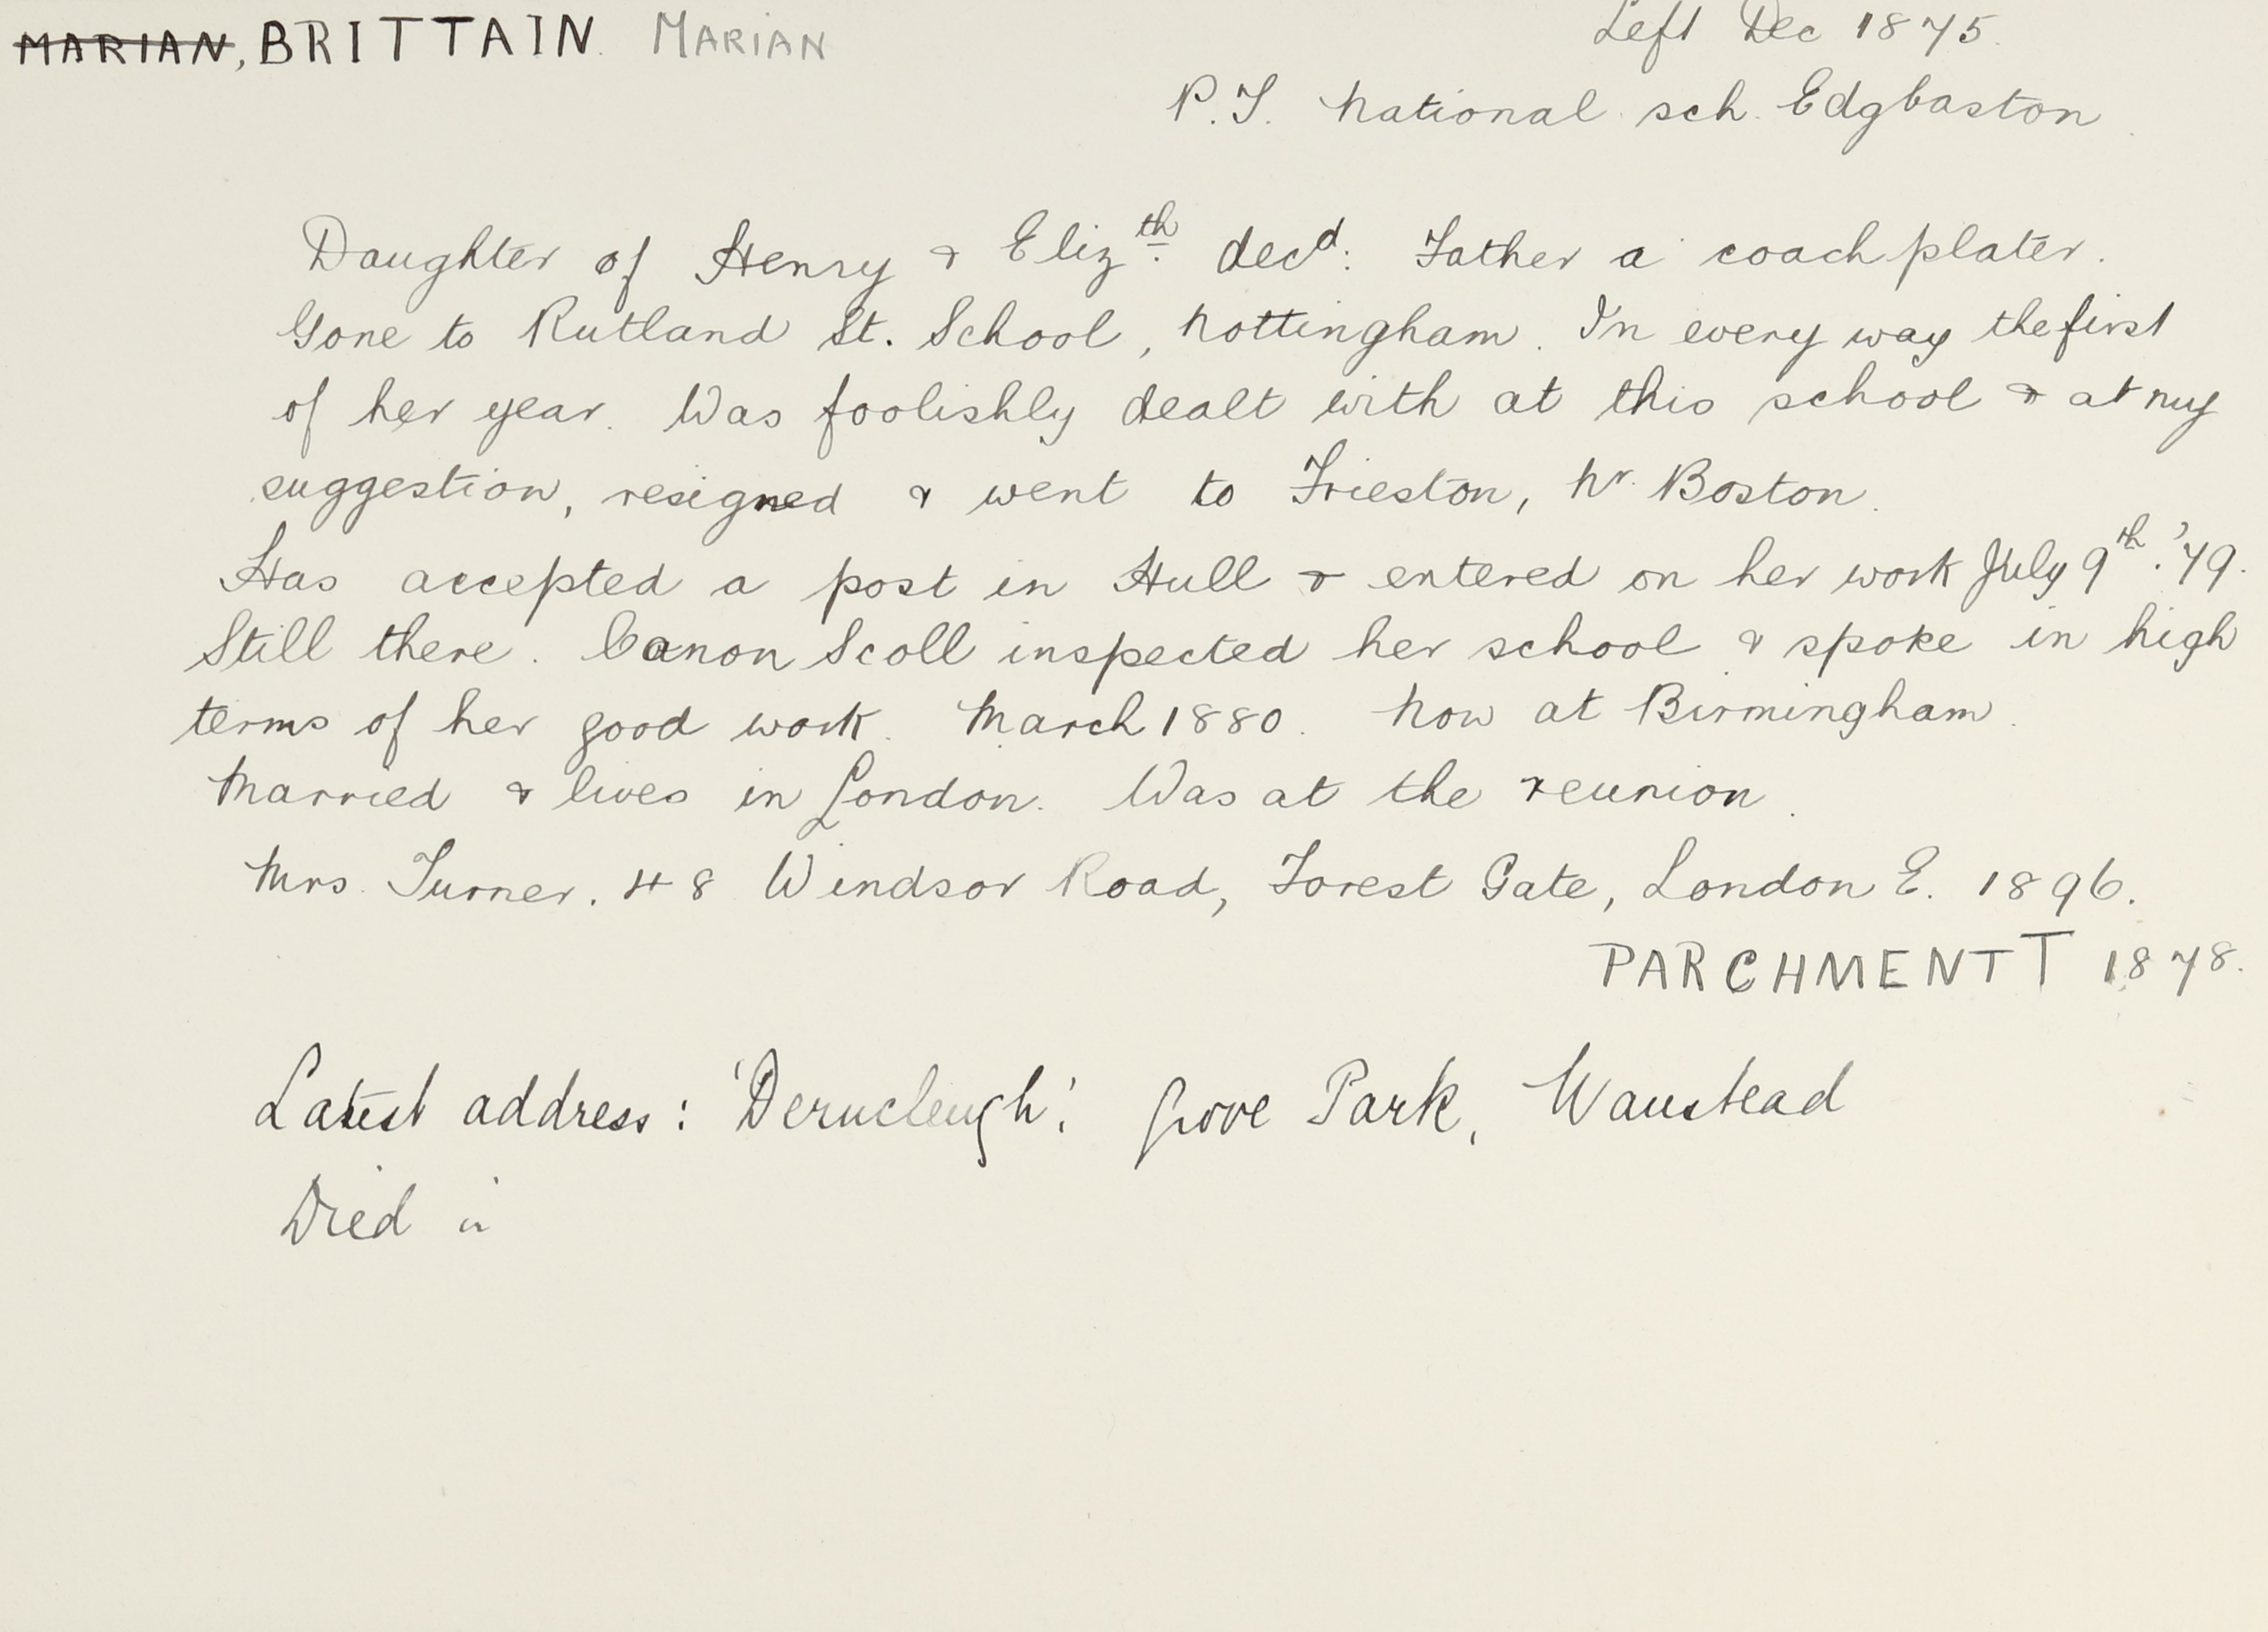 ~~MARIAN~~, BRITTAIN. MARIAN
Left Dec 1875.
P.T. National sch. Edgbaston.
Daughter of Henry & Elizth. decd: Father a coach plater.
Gone to Rutland St. School, Nottingham. In every way the first
of her year. Was foolishly dealt with at this school & at my
suggestion, resigned & went to Frieston, Nr. Boston.
Has accepted a post in Hull & entered on her work July 9th. '79.
Still there. Canon Scoll inspected her school & spoke in high
terms of her good work. March 1880. Now at Birmingham.
Married & lives in London. Was at the reunion.
Mrs. Turner. 48 Windsor Road, Forest Gate, London E. 1896.
PARCHMENTT 1878.
Latest address: 'Derncleugh', Grove Park, Wanstead
Died in